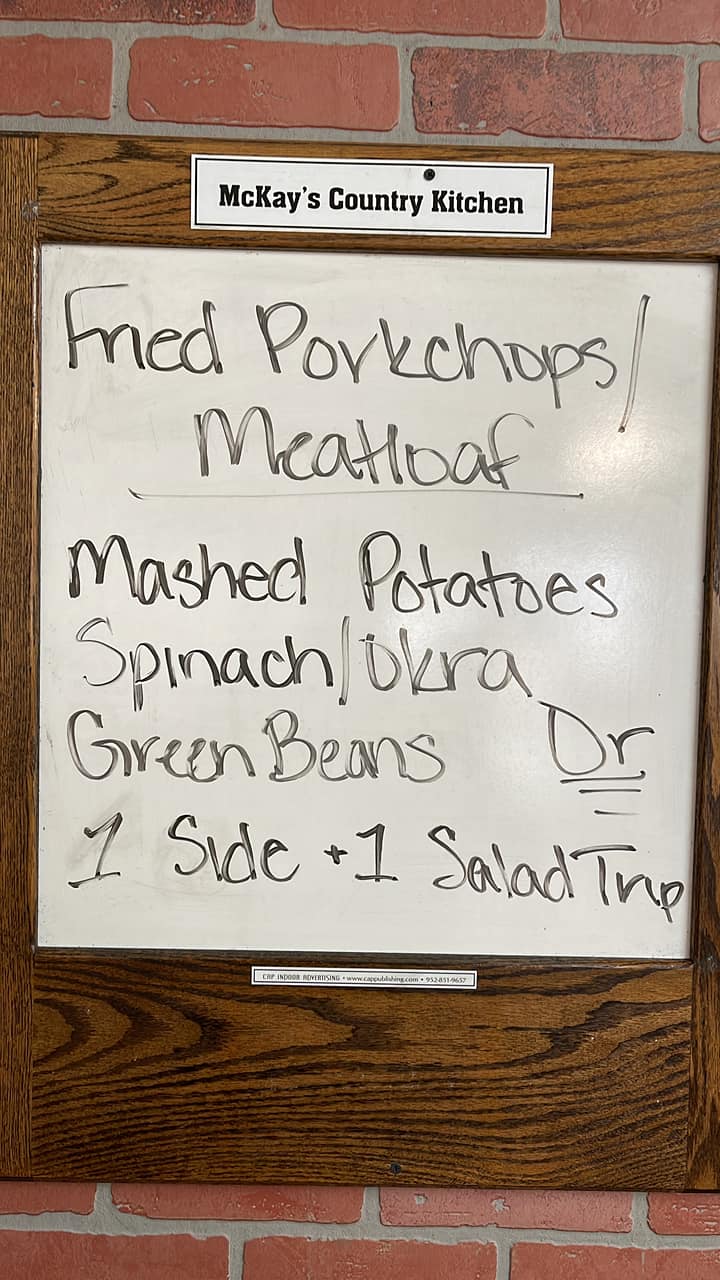 McKay's Country Kitchen
Fried Porkchops/
Meatloaf
Mashed Potatoes
Spinach/Okra
Green Beans Or
1 Side + 1 Salad Trip
CAP INDOOR ADVERTISING • www.cappublishing.com • 952-851-9657